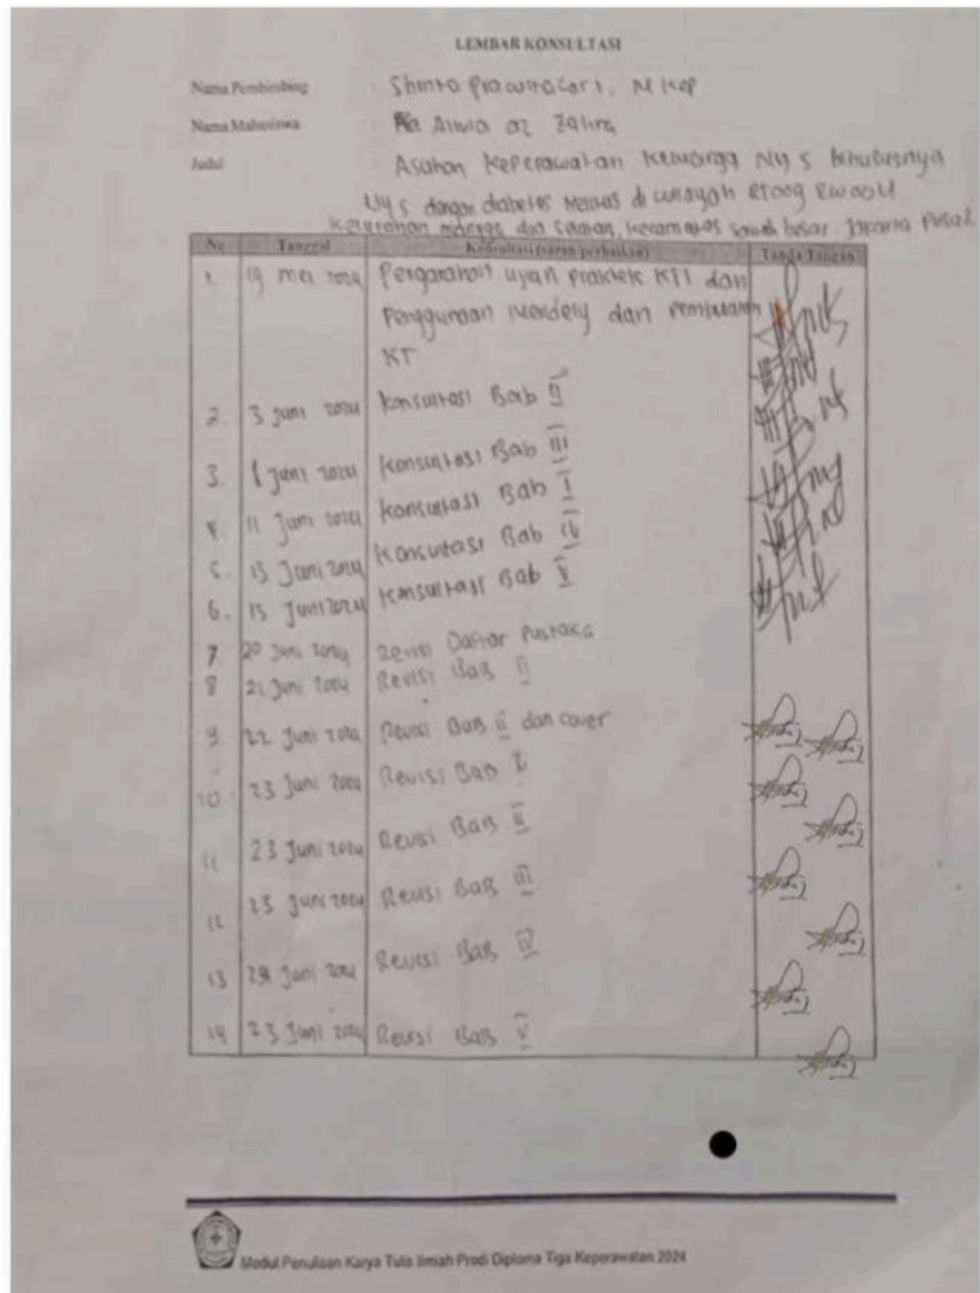 LEMBAR KONSULTASI
Nama Pembimbing : Shinta Prawitasari, M Kep
Nama Mahasiswa : Alivia az Zahra
Judul : Asuhan Keperawatan Keluarga Ny S khususnya
Ny S dengan diabetes Melitus di wilayah
Kelurahan mangga dua selatan, kecamatan sawah besar Jakarta Pusat
No Tanggal Konsultasi (saran perbaikan) Tanda Tangan
1. 19 mei 2024 Pengarahan ujian Praktek KTI dan
Penggunaan Mendely dan Pembuatan
KT
2. 3 juni 2024 Konsultasi Bab II
3. juni 2024 Konsultasi Bab III
4. 11 Juni 2024 Konsultasi Bab I
5. 13 Juni 2024 Konsultasi Bab IV
6. 13 Juni 2024 Konsultasi Bab V
7. 20 Juni 2024 Revisi Daftar Pustaka
8 21 Juni 2024 Revisi Bab II
9 22 Juni 2024 Revisi Bab II dan cover
10 23 Juni 2024 Revisi Bab I
11 23 Juni 2024 Revisi Bab II
12 Juni 2024 Revisi Bab III
13 Juni 2024 Revisi Bab IV
14 23 Juni 2024 Revisi Bab V
Modul Penulisan Karya Tulis Ilmiah Prodi Diploma Tiga Keperawatan 2024